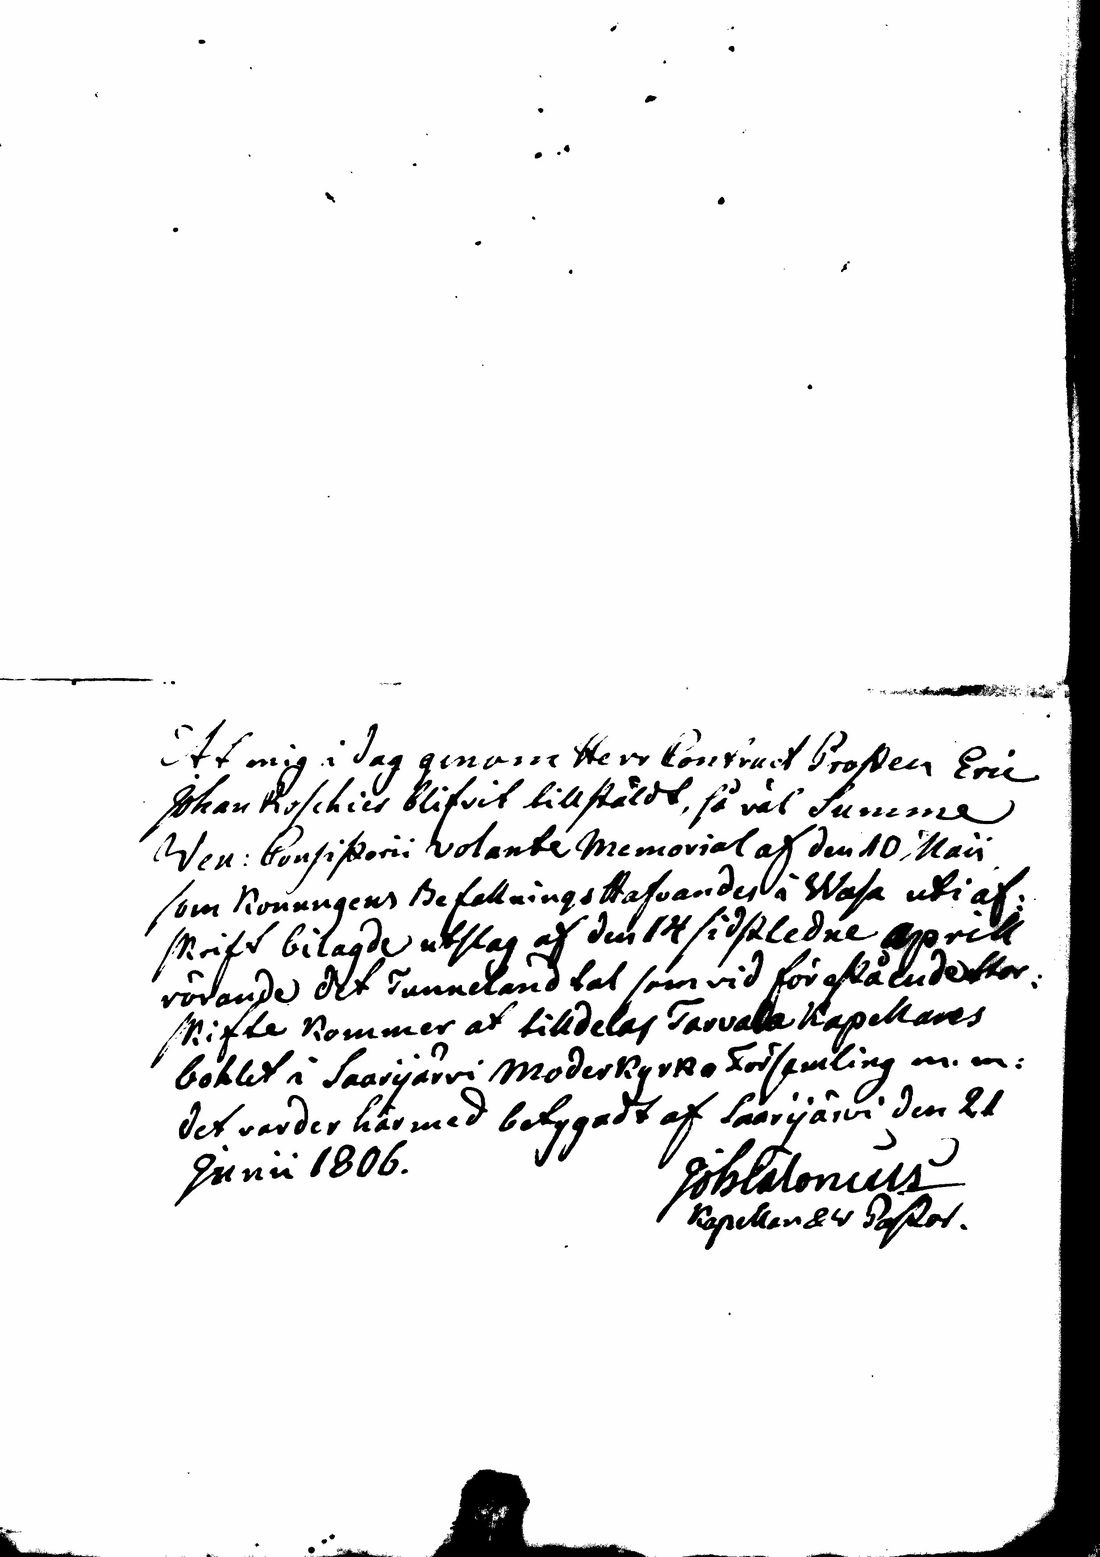 At mig i dag genom Herr Contract Prosten Eric
Johan Roschier blifvit tillstäldt, så väl Summe
Ven: Consistorii volante Memorial af den 10 Maii
som Konungens Befallnings Hafvandes i Wasa uti af:
skrift bilagde utslag af den 14 sidstledne april
rörande det Tunneland tal som vid förestående stor:
skifte kommer at tilldelas Tarvala Kapellares
bohlet i Saarijärvi Moderkyrko Församling m. m:
det varder härmed betygadt af Saarijärvi den 21
Junii 1806.
Joh Calonius
Kapellan & V Pastor.